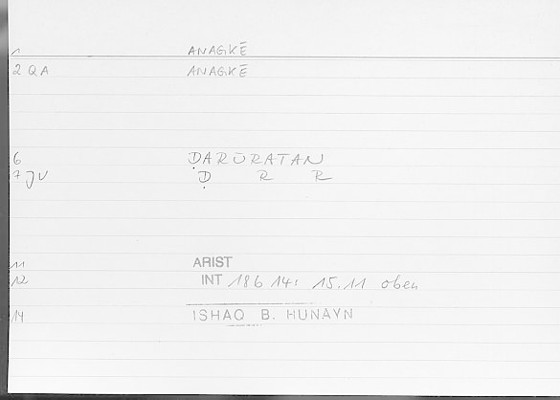 1 ANAGKĒ
2 QA ANAGKĒ
6 ḌARŪRATAN
7 JV Ḍ R R
11 ARIST
12 INT 186 14: 15.11 oben
14 ISHAQ B. HUNAYN